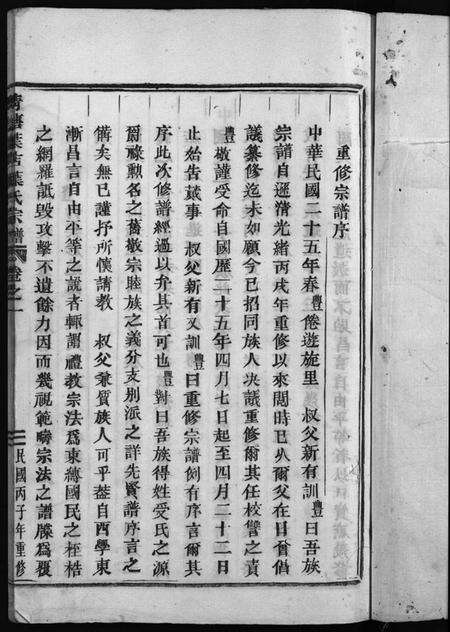 重修宗譜序
中華民國二十五年春豐倦遊旋里 叔父新有訓豐曰吾族
宗譜自遜清光緒丙戌年重修以來閱時已久爾父在日嘗倡
議纂修迄未如願今已招同族人决議重修爾其任校讐之責
豐敬謹受命自國歷二十五年四月七日起至四月二十二日
止始告蕆事 叔父新有又訓豐曰重修宗譜例有序言爾其
序此次修譜經過以介其首可也豐對曰吾族得姓受氏之源
爵祿勳名之舊敬宗睦族之義分支別派之詳先賢譜序言之
備矣無已謹抒所懷請教 叔父兼質族人可乎葢自西學東
漸昌言自由平等之說者輒謂禮教宗法爲東縛國民之桎梏
之網羅詆毀攻擊不遺餘力因而蔑視範疇宗法之譜牒爲覆
葉氏宗譜 卷之一
民國丙子年重修